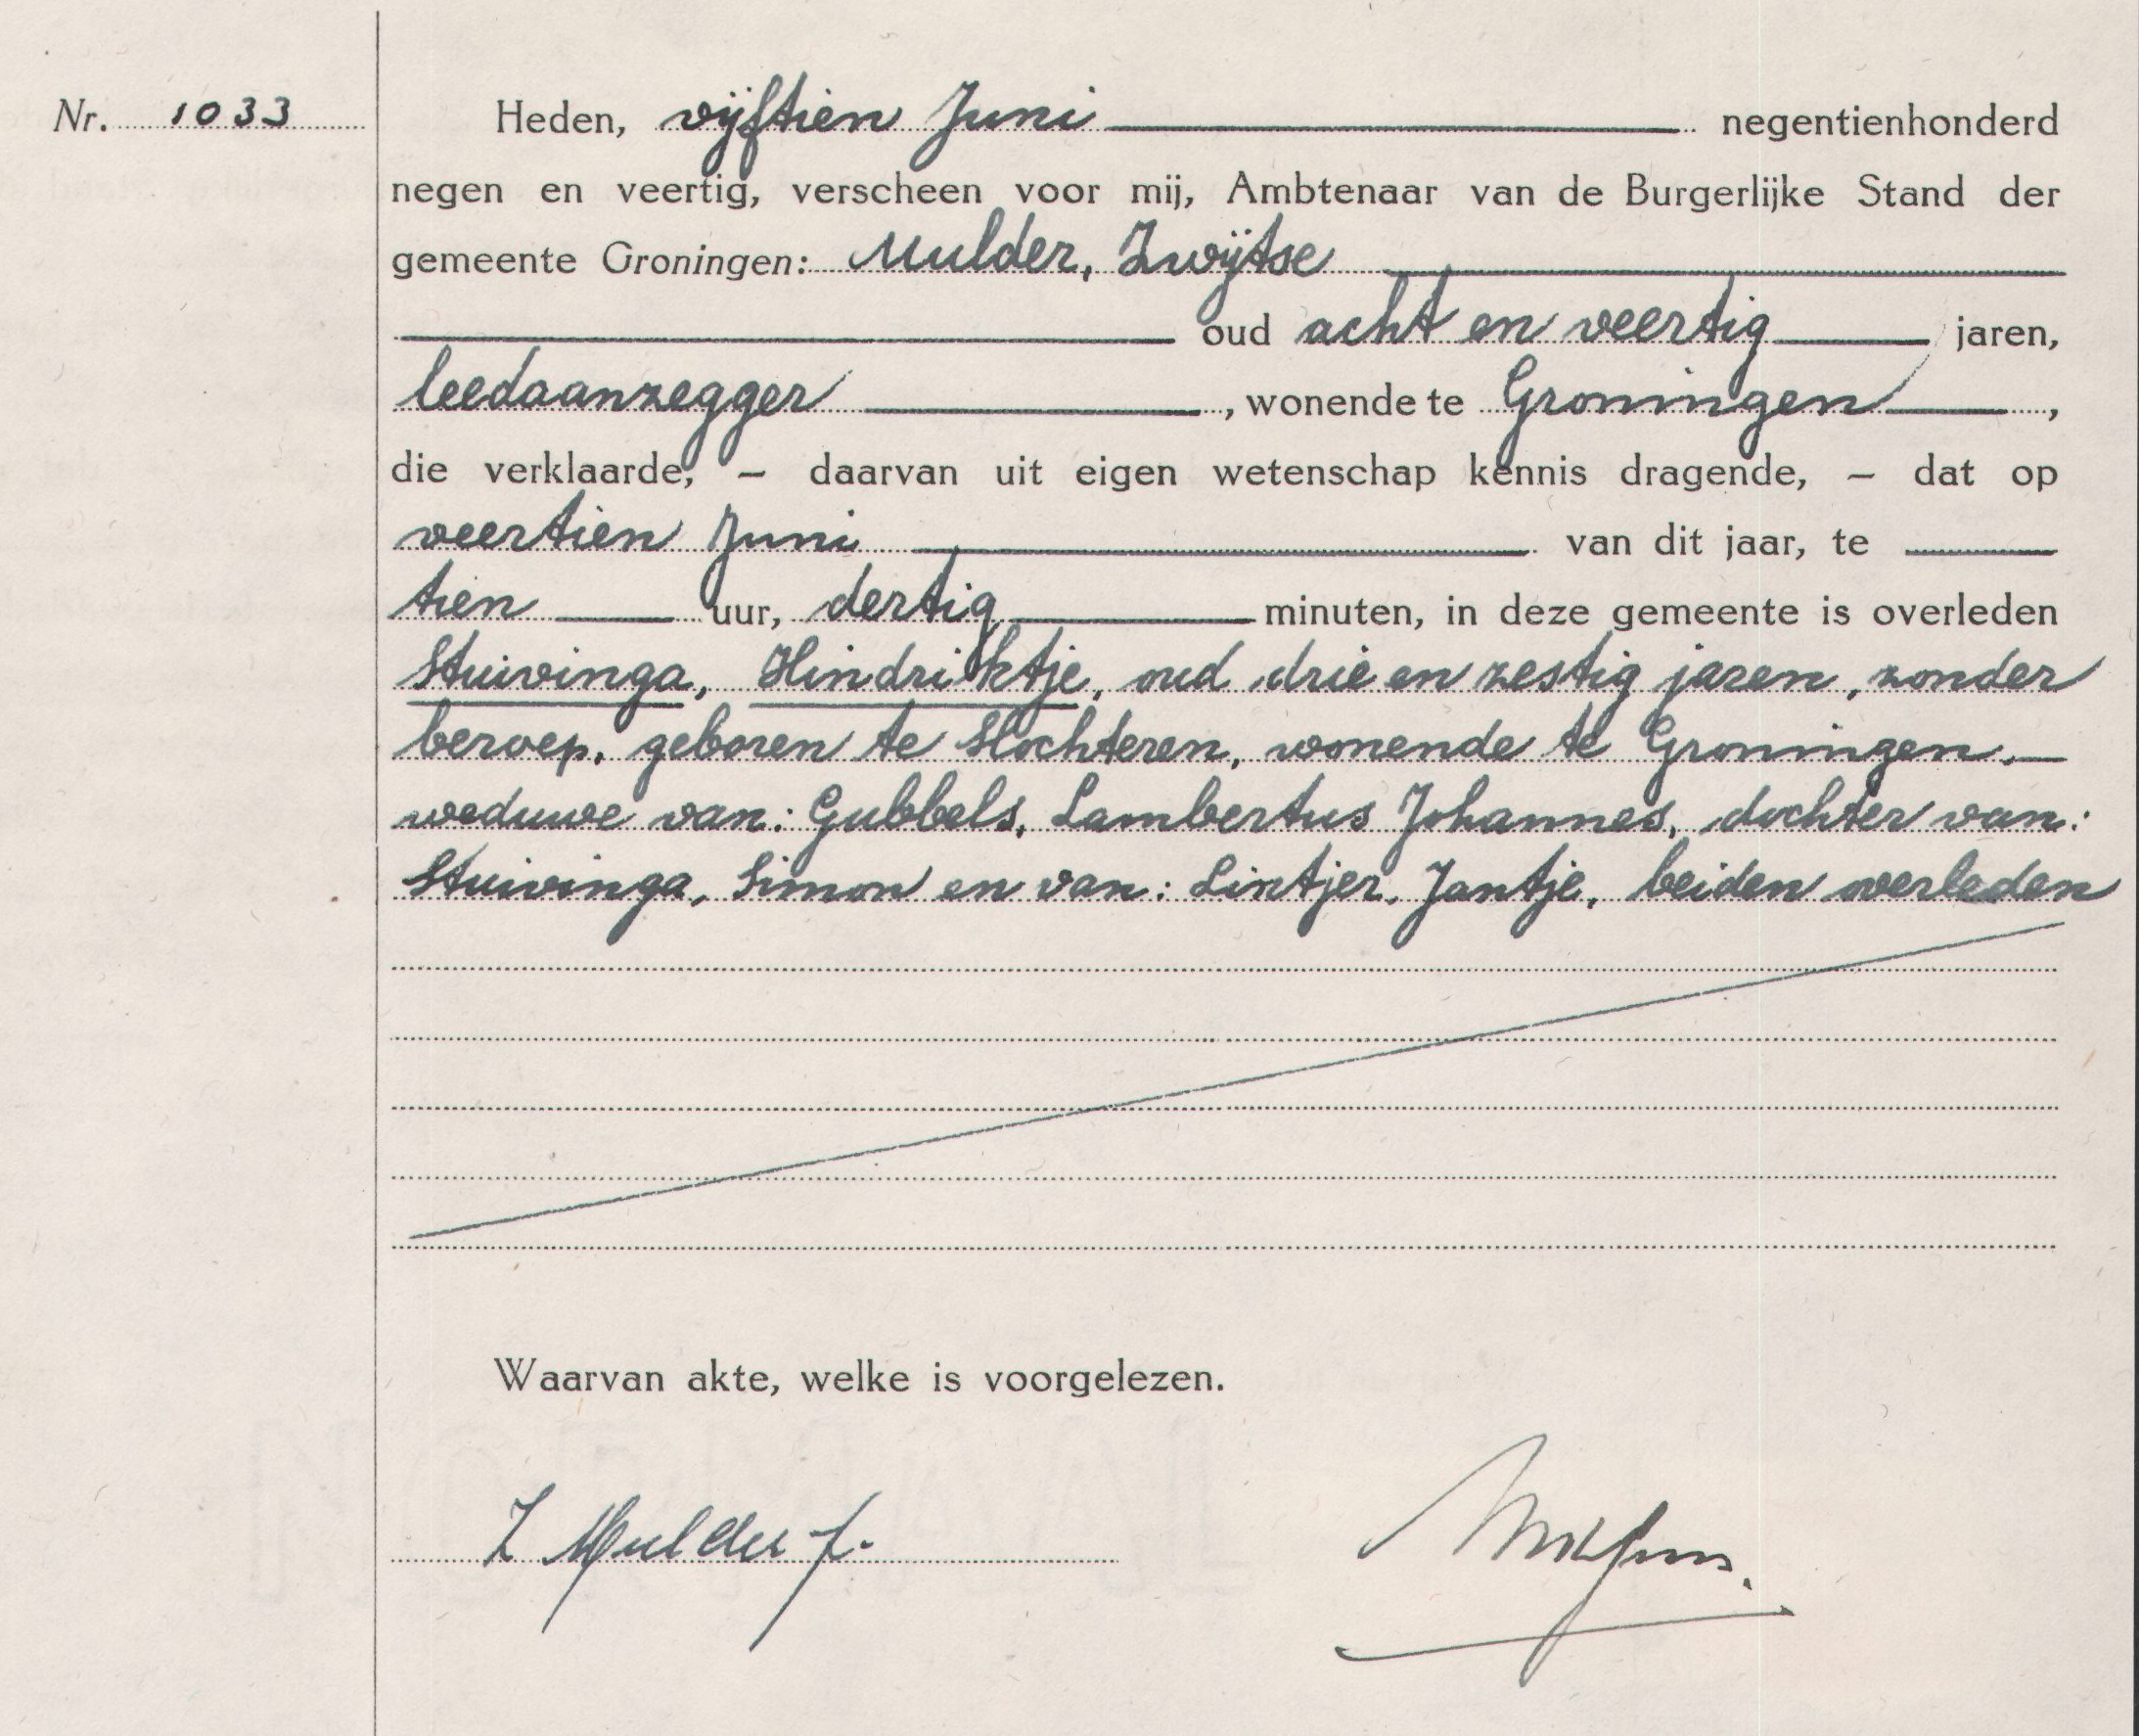 Nr. 1033
Heden, vijftien Juni negentienhonderd
negen en veertig, verscheen voor mij, Ambtenaar van de Burgerlijke Stand der
gemeente Groningen: Mulder, Zwijtse
oud acht en veertig jaren,
leedaanzegger, wonende te Groningen,
die verklaarde, – daarvan uit eigen wetenschap kennis dragende, – dat op
veertien Juni van dit jaar, te
tien uur, dertig minuten, in deze gemeente is overleden
Stuivinga, Hindriktje, oud drie en zestig jaren, zonder
beroep, geboren te Slochteren, wonende te Groningen,
weduwe van: Gubbels, Lambertus Johannes, dochter van:
Stuivinga, Simon en van: Lintjer, Jantje, beiden overleden
Waarvan akte, welke is voorgelezen.
Z Mulder